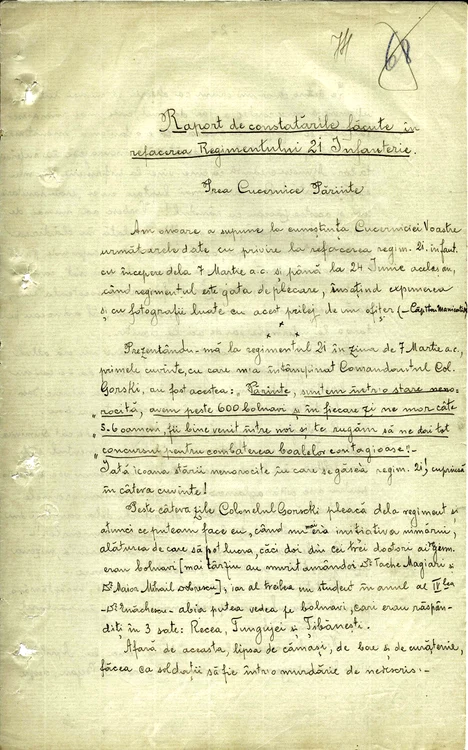 68
Raport de constatările făcute în
refacerea Regimentului 21 Infanterie.
Prea Cucernice Părinte
Am onoare a supune la cunoștința Cucerniciei Voastre
următoarele date cu privire la refacerea regim. 21. infant.
cu începere dela 7 Martie a.c. și până la 24 Iunie acelas an,
când regimentul este gata de plecare, însoțind expunerea
și cu fotografii luate cu acest prilej de un ofițer (-Căpitan
x x x
Prezentându-mă la regimentul 21 în ziua de 7 Martie a.c.,
primele cuvinte, cu care m'a întâmpinat Comandantul Col.
Gorski, au fost acestea: „Părinte, suntem într'o stare neno-
„rocită, avem peste 600 bolnavi și în fiecare zi ne mor câte
„5-6 oameni, fii bine venit între noi și te rugăm să ne dai tot
„concursul pentru combaterea boalelor contagioase!".-
Iată icoana stării nenorocite în care se găsea regim. 21, cuprinsă
în câteva cuvinte!
Peste câteva zile Colonelul Gorscki pleacă dela regiment și
atunci ce puteam face eu, când nu mai era inițiativa nimărui,
alăturea de care să pot lucra, căci doi din cei trei doctori ai regim.
erau bolnavi [mai târziu au murit amândoi Dr Tache Magiari și
Dr Maior Mihail Dobrescu], iar al treilea un student în anul al IV lea
-Dr Enăchescu- abia putea vedea pe bolnavi, cari erau răspân-
diți în 3 sate: Recea, Tungujei și Țibănești.
Afară de aceasta, lipsa de cămăși, de bae și de curățenie,
făcea ca soldații să fie într'o murdărie de nedescris.-